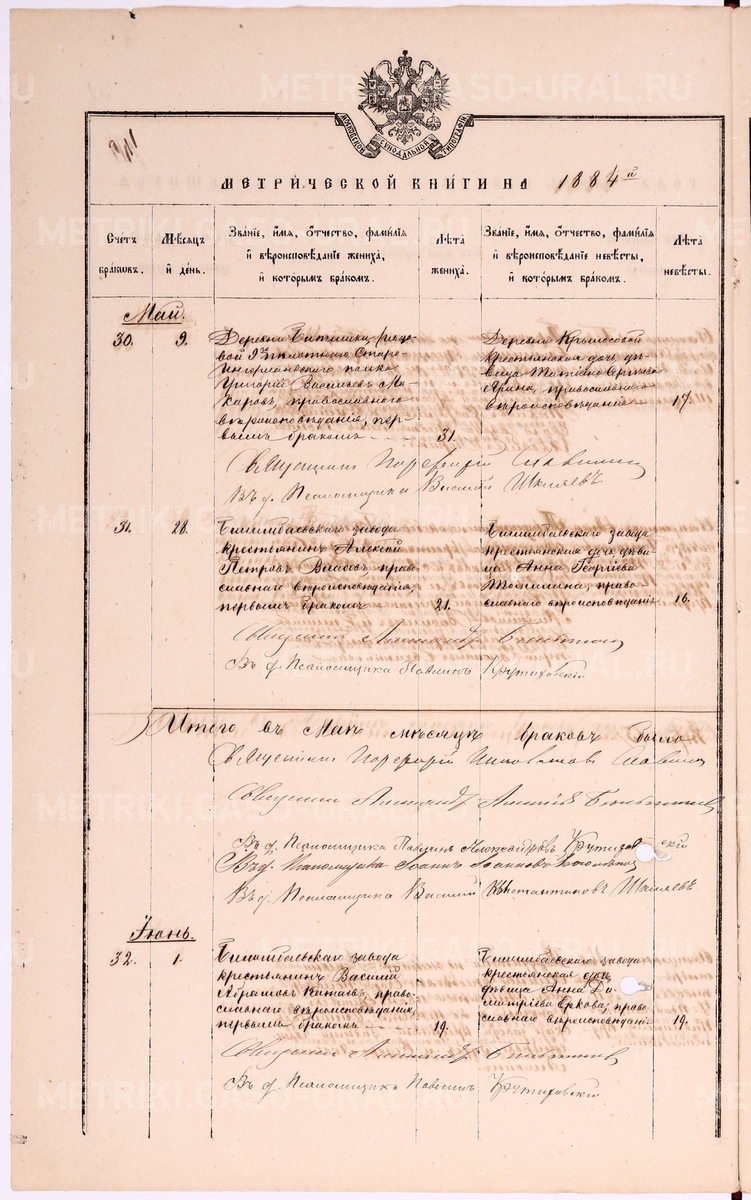 METRIKI.GASO-URAL.RU
МОСКОВСКОЙ СѴНОДАЛЬНОЙ ТИПОГРАФІИ
МЕТРИЧЕСКОЙ КНИГИ НА 1884й
Счетъ браковъ.
Мѣсяцъ и день.
Званіе, имя, отчество, фамилія
и вѣроисповѣданіе жениха,
и которымъ бракомъ.
Лѣта
жениха.
Званіе, имя, отчество, фамилія
и вѣроисповѣданіе невѣсты,
и которымъ бракомъ.
Лѣта
невѣсты.
Май.
30. 9.
Деревни
вой 9го пѣхотнаго Старо-
Ингерманландскаго полка
Григорій Васильевъ Ма-
каровъ, православнаго
вѣроисповѣданія, пер-
вымъ бракомъ 31.
Деревни Крылосовой
крестьянская дочь, дѣ-
вица
православнаго
вѣроисповѣданія 17.
Священникъ Порфирій Славнинъ
Въ д. Псаломщика Василій Шкляевъ
31. 28.
Билимбаевскаго завода
крестьянинъ Алексѣй
Петровъ Власовъ, право-
славнаго вѣроисповѣданія,
первымъ бракомъ 21.
Билимбаевскаго завода
крестьянская дочь, дѣви-
ца Анна Георгіева
право-
славнаго вѣроисповѣданія 16.
Священникъ Александръ
Въ д. Псаломщика Павлинъ Крутиховскій
Итого въ Маѣ мѣсяцѣ браковъ было
Священникъ Порфирій Славнинъ
Священникъ Александръ
Въ д. Псаломщика Павлинъ Александровъ Крутиховскій
Въ д. Псаломщика Іоаннъ Іоанновъ
Въ д. Псаломщика Василій Константиновъ Шкляевъ
Іюнь.
32. 1.
Билимбаевскаго завода
крестьянинъ Василій
Абрамовъ Китаевъ, право-
славнаго вѣроисповѣданія,
первымъ бракомъ 19.
Билимбаевскаго завода
крестьянская дочь,
дѣвица Анна Ди-
митріева право-
славнаго вѣроисповѣданія 19.
Священникъ Александръ
Въ д. Псаломщика Павлинъ Крутиховскій